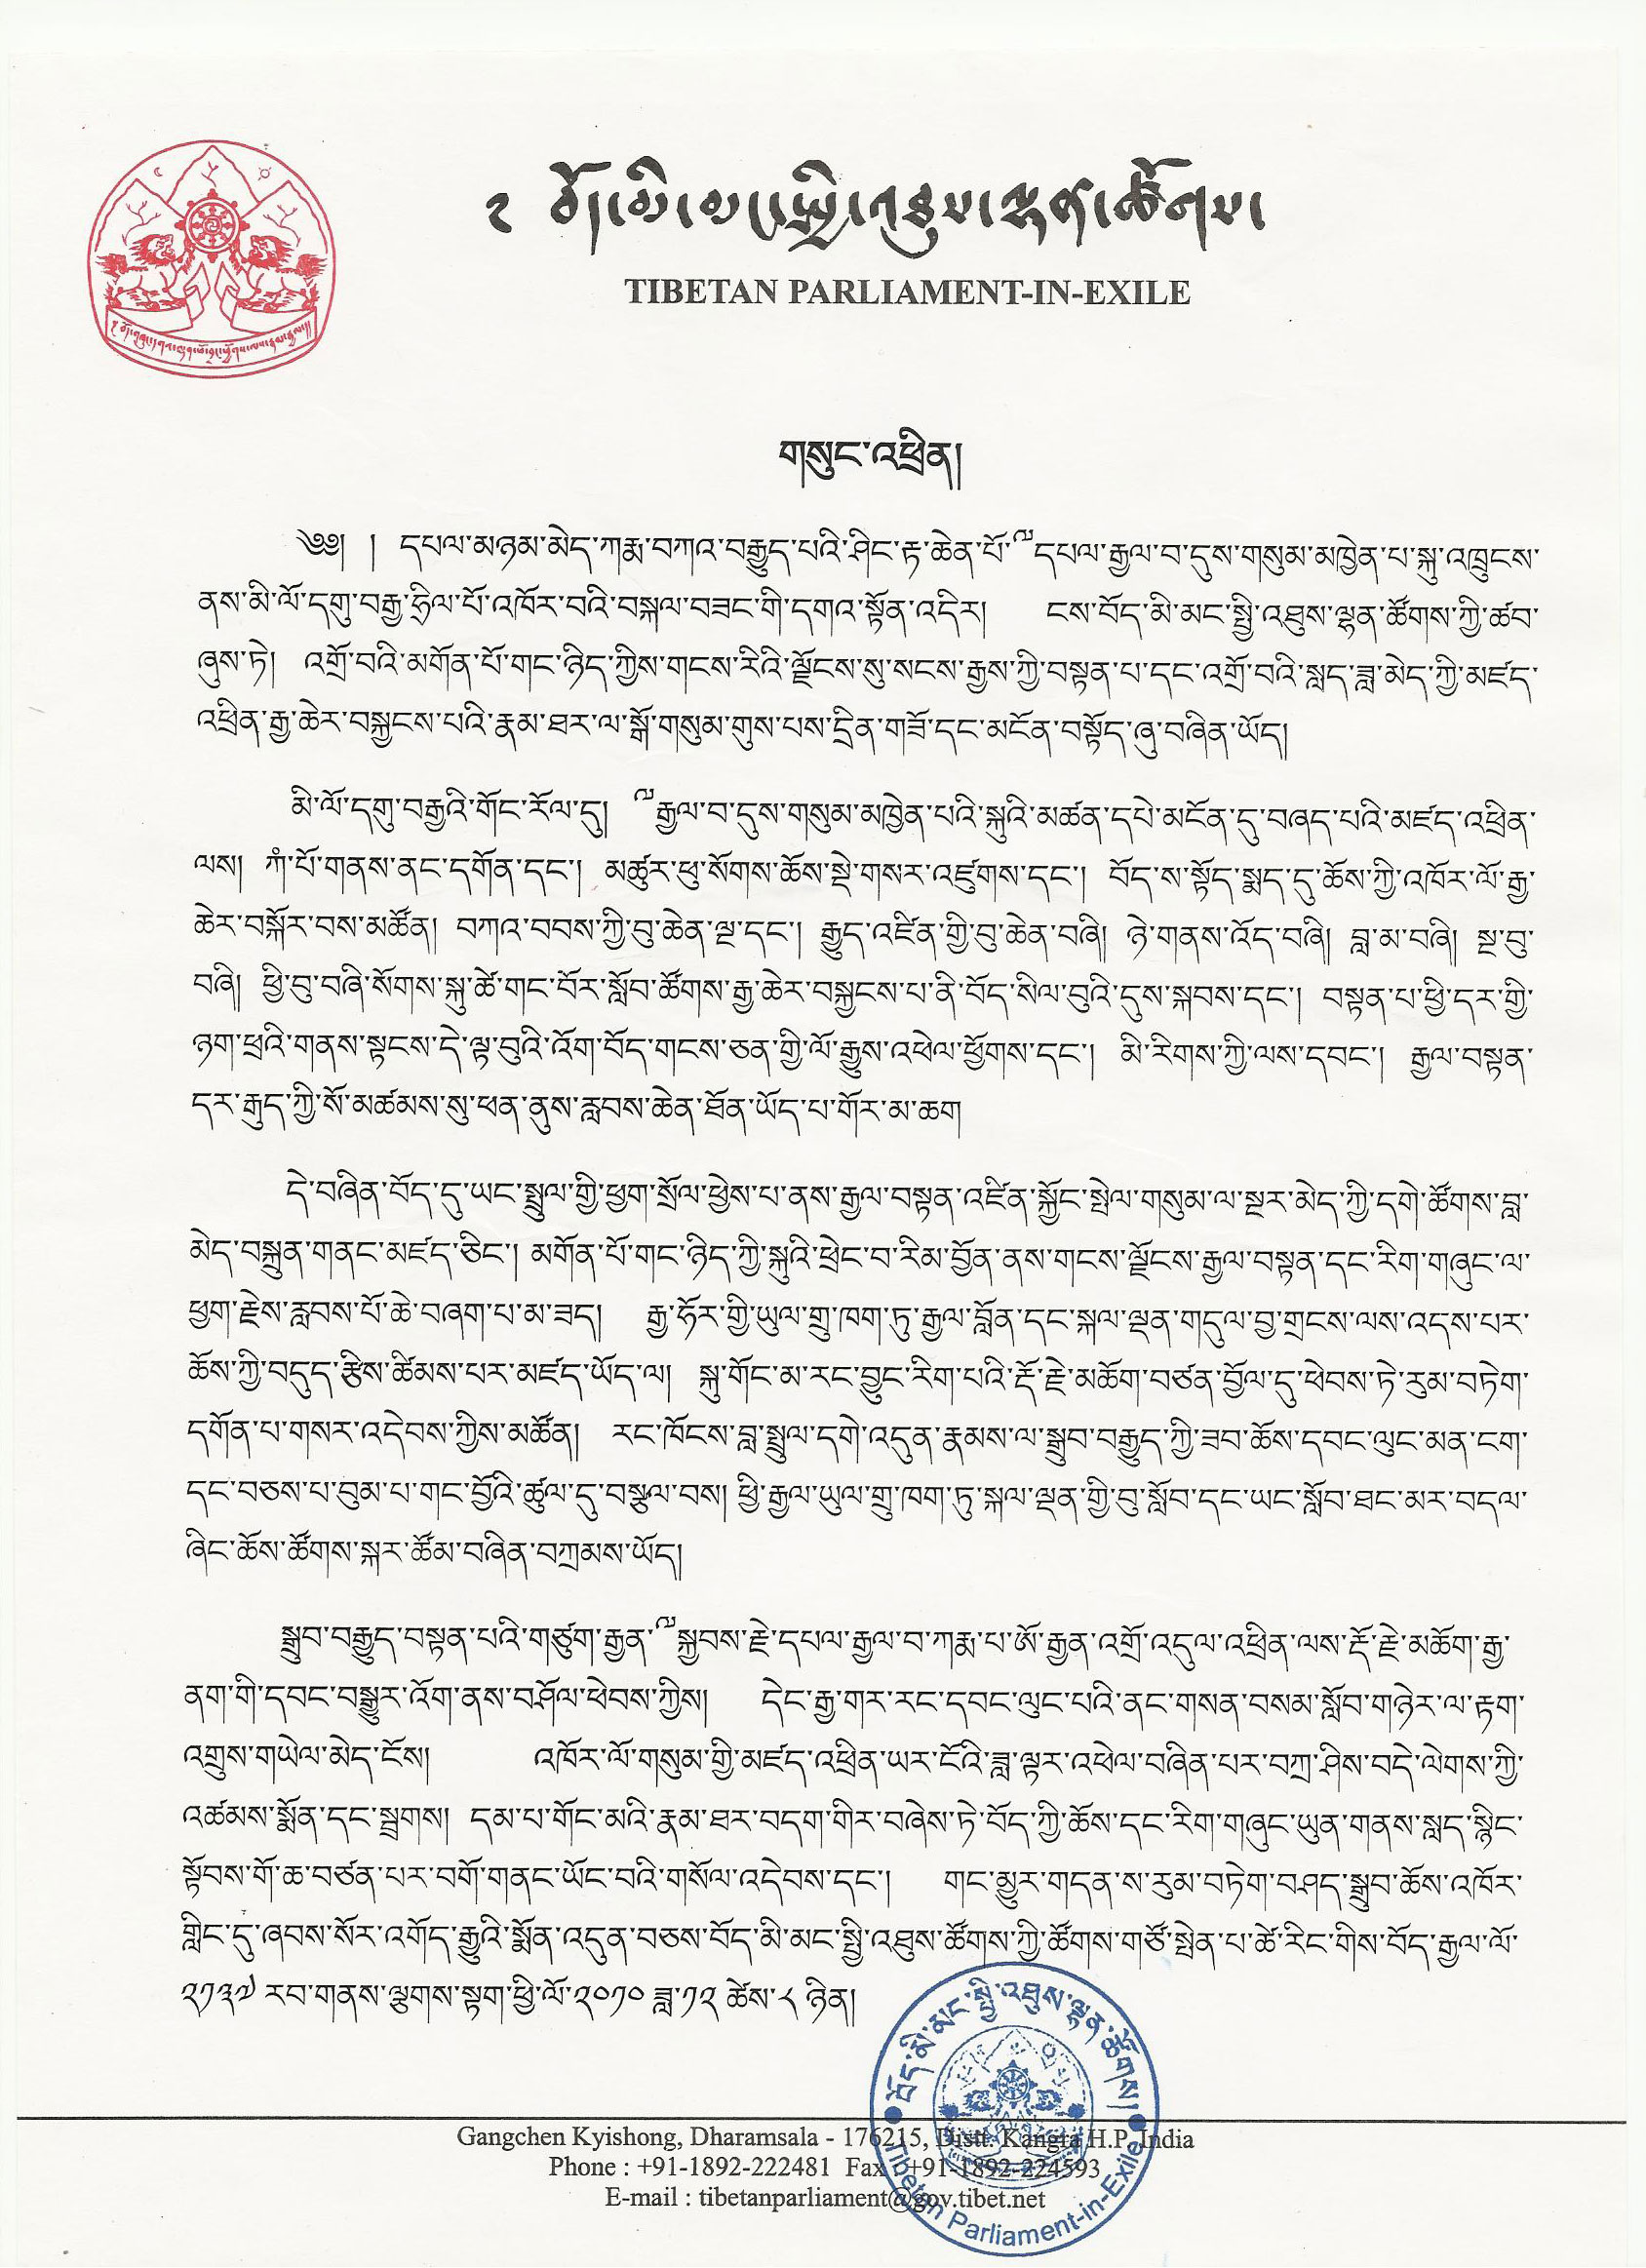 ༄ བོད་མི་མང་སྤྱི་འཐུས་ལྷན་ཚོགས།
TIBETAN PARLIAMENT-IN-EXILE
གསུང་འཕྲིན།
༄༅། ། དཔལ་མཉམ་མེད་ཀརྨ་བཀའ་བརྒྱུད་པའི་ཤིང་རྟ་ཆེན་པོ་༸དཔལ་རྒྱལ་བ་དུས་གསུམ་མཁྱེན་པ་སྐུ་འཁྲུངས་
ནས་མི་ལོ་དགུ་བརྒྱ་ཧྲིལ་པོ་འཁོར་བའི་བསྐལ་བཟང་གི་དགའ་སྟོན་འདིར། ངས་བོད་མི་མང་སྤྱི་འཐུས་ལྷན་ཚོགས་ཀྱི་ཚབ་
ཞུས་ཏེ། འགྲོ་བའི་མགོན་པོ་གང་ཉིད་ཀྱིས་གངས་རིའི་ལྗོངས་སུ་སངས་རྒྱས་ཀྱི་བསྟན་པ་དང་འགྲོ་བའི་སླད་ཟླ་མེད་ཀྱི་མཛད་
འཕྲིན་རྒྱ་ཆེར་བསྐྱངས་པའི་རྣམ་ཐར་ལ་སྒོ་གསུམ་གུས་པས་དྲིན་གཟོ་དང་མངོན་བསྟོད་ཞུ་བཞིན་ཡོད།
མི་ལོ་དགུ་བརྒྱའི་གོང་རོལ་དུ། ༸རྒྱལ་བ་དུས་གསུམ་མཁྱེན་པའི་སྐུའི་མཚན་དཔེ་མངོན་དུ་བཞད་པའི་མཛད་འཕྲིན་
ལས། ཀཾ་པོ་གནས་ནང་དགོན་དང་། མཚུར་ཕུ་སོགས་ཆོས་སྡེ་གསར་འཛུགས་དང་། བོད་ས་སྟོད་སྨད་དུ་ཆོས་ཀྱི་འཁོར་ལོ་རྒྱ་
ཆེར་བསྐོར་བས་མཚོན། བཀའ་བབས་ཀྱི་བུ་ཆེན་ལྔ་དང་། རྒྱུད་འཛིན་གྱི་བུ་ཆེན་བཞི། ཉེ་གནས་འོད་བཞི། བླ་མ་བཞི། སྔ་བུ་
བཞི། ཕྱི་བུ་བཞི་སོགས་སྐུ་ཚེ་གང་བོར་སློབ་ཚོགས་རྒྱ་ཆེར་བསྐྱངས་པ་ནི་བོད་སིལ་བུའི་དུས་སྐབས་དང་། བསྟན་པ་ཕྱི་དར་གྱི་
ཉག་ཕྲའི་གནས་སྟངས་དེ་ལྟ་བུའི་འོག་བོད་གངས་ཅན་གྱི་ལོ་རྒྱུས་འཕེལ་ཕྱོགས་དང་། མི་རིགས་ཀྱི་ལས་དབང་། རྒྱལ་བསྟན་
དར་རྒུད་ཀྱི་སོ་མཚམས་སུ་ཕན་ནུས་རླབས་ཆེན་ཐོན་ཡོད་པ་གོར་མ་ཆག
དེ་བཞིན་བོད་དུ་ཡང་སྤྲུལ་གྱི་ཕྱག་སྲོལ་ཕྱེས་པ་ནས་རྒྱལ་བསྟན་འཛིན་སྐྱོང་སྤེལ་གསུམ་ལ་སྔར་མེད་ཀྱི་དགེ་ཚོགས་བླ་
མེད་བསྐྲུན་གནང་མཛད་ཅིང་། མགོན་པོ་གང་ཉིད་ཀྱི་སྐུའི་ཕྲེང་བ་རིམ་བྱོན་ནས་གངས་ལྗོངས་རྒྱལ་བསྟན་དང་རིག་གཞུང་ལ་
ཕྱག་རྗེས་རླབས་པོ་ཆེ་བཞག་པ་མ་ཟད། རྒྱ་ཧོར་གྱི་ཡུལ་གྲུ་ཁག་ཏུ་རྒྱལ་བློན་དང་སྐལ་ལྡན་གདུལ་བྱ་གྲངས་ལས་འདས་པར་
ཆོས་ཀྱི་བདུད་རྩིས་ཚིམས་པར་མཛད་ཡོད་ལ། སྐུ་གོང་མ་རང་བྱུང་རིག་པའི་རྡོ་རྗེ་མཆོག་བཙན་བྱོལ་དུ་ཕེབས་ཏེ་རུམ་བཏེག་
དགོན་པ་གསར་འདེབས་ཀྱིས་མཚོན། རང་ཁོངས་བླ་སྤྲུལ་དགེ་འདུན་རྣམས་ལ་སྒྲུབ་བརྒྱུད་ཀྱི་ཟབ་ཆོས་དབང་ལུང་མན་ངག་
དང་བཅས་པ་བུམ་པ་གང་བྱོའི་ཚུལ་དུ་བསྩལ་བས། ཕྱི་རྒྱལ་ཡུལ་གྲུ་ཁག་ཏུ་སྐལ་ལྡན་གྱི་བུ་སློབ་དང་ཡང་སློབ་ཐང་མར་བདལ་
ཞིང་ཆོས་ཚོགས་སྐར་ཚོམ་བཞིན་བཀྲམས་ཡོད།
སྒྲུབ་བརྒྱུད་བསྟན་པའི་གཙུག་རྒྱན་༸སྐྱབས་རྗེ་དཔལ་རྒྱལ་བ་ཀརྨ་པ་ཨོ་རྒྱན་འགྲོ་འདུལ་འཕྲིན་ལས་རྡོ་རྗེ་མཆོག་རྒྱ་
ནག་གི་དབང་བསྒྱུར་འོག་ནས་བཤོལ་ཕེབས་ཀྱིས། དེང་རྒྱ་གར་རང་དབང་ལུང་པའི་ནང་གསན་བསམ་སློབ་གཉེར་ལ་རྟག་
འགྲུས་གཡེལ་མེད་ངོས། འཁོར་ལོ་གསུམ་གྱི་མཛད་འཕྲིན་ཡར་ངོའི་ཟླ་ལྟར་འཕེལ་བཞིན་པར་བཀྲ་ཤིས་བདེ་ལེགས་ཀྱི་
འཚམས་སྨོན་དང་སྦྲགས། དམ་པ་གོང་མའི་རྣམ་ཐར་བདག་གིར་བཞེས་ཏེ་བོད་ཀྱི་ཆོས་དང་རིག་གཞུང་ཡུན་གནས་སླད་སྙིང་
སྟོབས་གོ་ཆ་བཙན་པར་བགོ་གནང་ཡོང་བའི་གསོལ་འདེབས་དང་། གང་མྱུར་གདན་ས་རུམ་བཏེག་བཤད་སྒྲུབ་ཆོས་འཁོར་
གླིང་དུ་ཞབས་སོར་འགོད་རྒྱུའི་སྨོན་འདུན་བཅས་བོད་མི་མང་སྤྱི་འཐུས་ཚོགས་ཀྱི་ཚོགས་གཙོ་སྤེན་པ་ཚེ་རིང་གིས་བོད་རྒྱལ་ལོ་
༢༡༣༧ རབ་གནས་ལྕགས་སྟག་ཕྱི་ལོ་༢༠༡༠ ཟླ་༡༢ ཚེས་༨ ཉིན།
བོད་མི་མང་སྤྱི་འཐུས་ལྷན་ཚོགས།
Tibetan Parliament-in-Exile
Gangchen Kyishong, Dharamsala - 176215, Distt. Kangra H.P. India
Phone : +91-1892-222481 Fax : +91-1892-224593
E-mail : tibetanparliament@gov.tibet.net